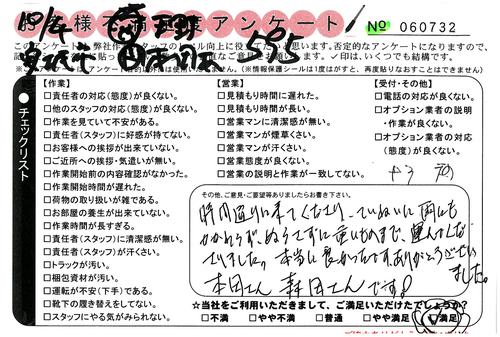 お客様不満足度アンケート
No 060732
このアンケートは、弊社作
スタッフのレベル向上に役
たいと思います。否定的なアンケートになりますので、
ご意見をお願い致します。✓印は、いくつでも結構です。
的以外は使用いたしません。(※情報保護シールは1度はがすと、再度貼りなおすことはできません)
チェックリスト
【作業】
□責任者の対応(態度)が良くない。
□他のスタッフの対応(態度)が良くない。
□作業を見ていて不安がある。
□責任者(スタッフ)に好感が持てない。
□お客様への挨拶が出来ていない。
□ご近所への挨拶・気遣いが無い。
□作業開始前の内容確認がなかった。
□作業開始時間が遅れた。
□荷物の取り扱いが雑である。
□お部屋の養生が出来ていない。
□作業時間が長すぎる。
□責任者(スタッフ)に清潔感が無い。
□責任者(スタッフ)が汗くさい。
□トラックが汚い。
□梱包資材が汚い。
□運転が不安(下手)である。
□靴下の履き替えをしてない。
□スタッフにやる気がみられない。
【営業】
□見積もり時間に遅れた。
□見積もり時間が長い。
□営業マンに清潔感が無い。
□営業マンが煙草くさい。
□営業マンが汗くさい。
□営業態度が良くない。
□営業の説明と作業が一致してない。
【受付・その他】
□電話の対応が良くない。
□オプション業者の説明
・作業が良くない。
□オプション業者の対応
(態度)が良くない。
その他、ご意見・ご要望等ありましたらお書き下さい。
時間通りに来てくださり、ていねいに雨にも
かかわらず、ぬらさずに重いものまで、運んでくだ
さいました。本当に良かったです。ありがとうござい
ました。
本田さん 森田さんです!
☆当社をご利用いただきまして、ご満足いただけたでしょうか?
□不満 □やや不満 □普通 □やや満足 ☑満足